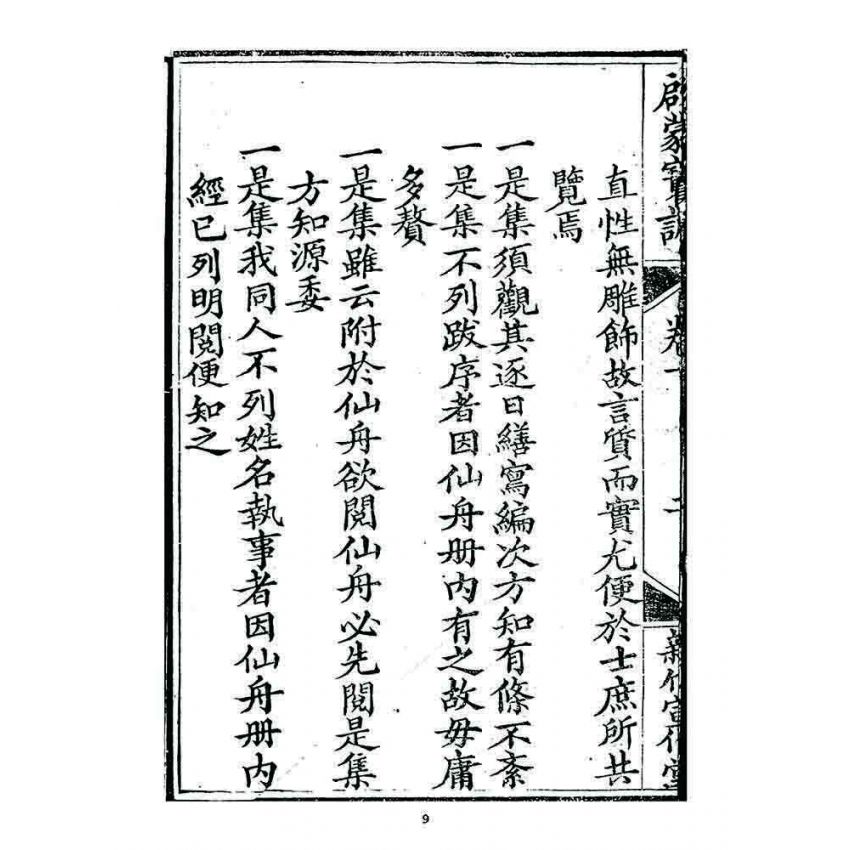 啟蒙寶訓 卷一 二 新竹宣化堂
直性無雕飾故言質而實尤便於士庶所共
覽焉
一是集須觀其逐日繕寫編次方知有條不紊
一是集不列跋序者因仙舟册內有之故毋庸
多贅
一是集雖云附於仙舟欲閱仙舟必先閱是集
方知源委
一是集我同人不列姓名執事者因仙舟册內
經已列明閱便知之
9